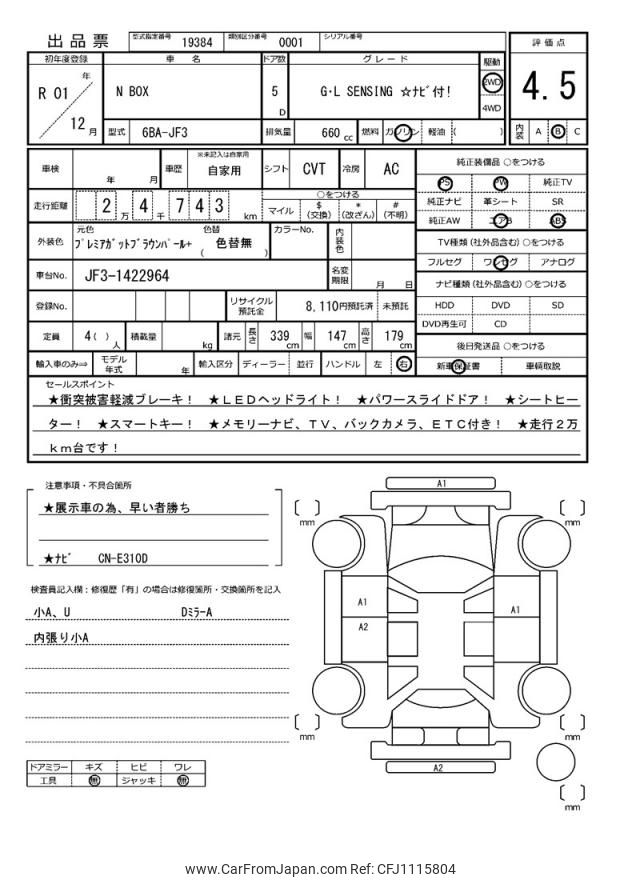 出品票 型式指定番号 19384 類別区分番号 0001 シリアル番号
評価点
4.5
内装 A B C
初年度登録 車名 ドア数 グレード 駆動
R 01 年 12 月
N BOX 5 D G・L SENSING ☆ナビ付! 2WD
4WD
型式 6BA-JF3 排気量 660 cc 燃料 ガソリン 軽油 ( )
車検 年 月 車歴 ※未記入は自家用 自家用 シフト CVT 冷房 AC
走行距離 2万4千743 km ○をつける
マイル $(交換) *(改ざん) #(不明)
外装色 元色 色替 カラーNo. 内装色
プレミアガットブラウンパール+ ( 色替無 )
車台No. JF3-1422964 名変期限 月 日
登録No. リサイクル預託金 8,110円預託済 未預託
定員 4( )人 積載量 kg 諸元 長さ 339 cm 幅 147 cm 高さ 179 cm
輸入車のみ⇒ モデル年式 年 輸入区分 ディーラー 並行 ハンドル 左 右
純正装備品 ○をつける
PS PW 純正TV
純正ナビ 革シート SR
純正AW エアB ABS
TV種類(社外品含む)○をつける
フルセグ ワンセグ アナログ
ナビ種類(社外品含む)○をつける
HDD DVD SD
DVD再生可 CD
後日発送品 ○をつける
新車保証書 車輌取説
セールスポイント
★衝突被害軽減ブレーキ! ★LEDヘッドライト! ★パワースライドドア! ★シートヒー
ター! ★スマートキー! ★メモリーナビ、TV、バックカメラ、ETC付き! ★走行2万
km台です!
注意事項・不具合箇所
★展示車の為、早い者勝ち
★ナビ CN-E310D
検査員記入欄:修復歴「有」の場合は修復箇所・交換箇所を記入
小A、U Dミラ-A
内張り小A
ドアミラー キズ ヒビ ワレ
工具 無 ジャッキ 無
A1
mm
mm
A1
A1
A2
mm
mm
A2
mm
www.CarFromJapan.com Ref: CFJ1115804